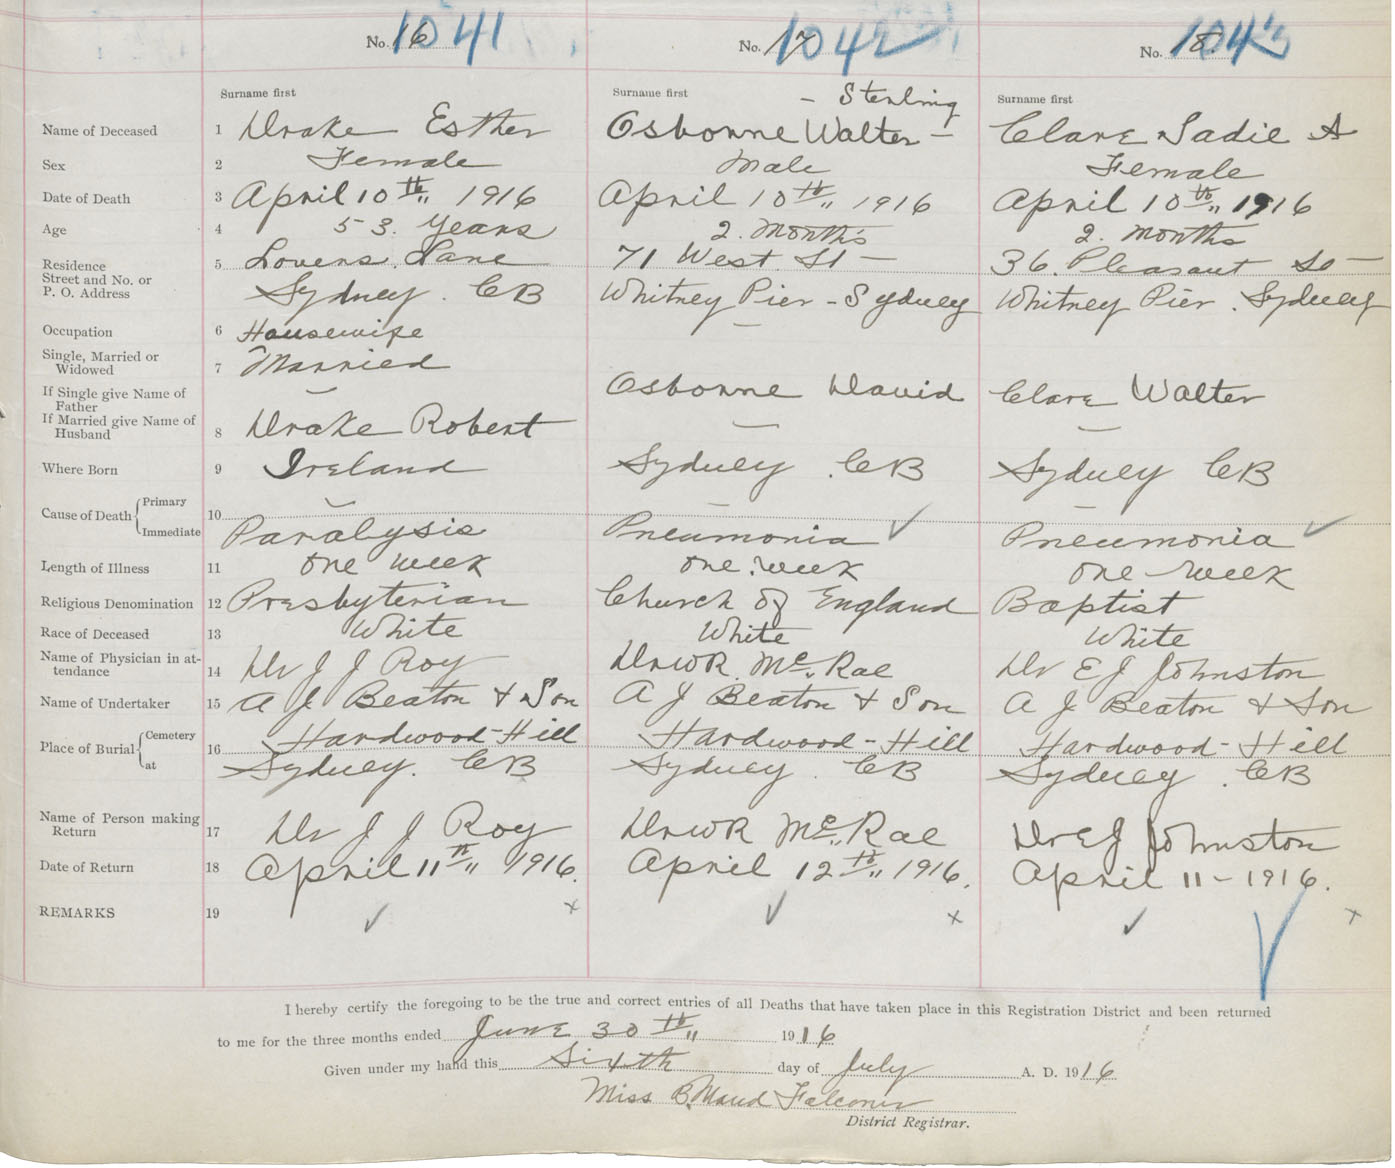 No. 16 1041
No. 17 1042
No. 18 1043
Surname first
Surname first
Surname first
- Sterling
Name of Deceased 1 Drake Esther
Osborne Walter -
Clare Sadie A
Sex 2 Female
Male
Female
Date of Death 3 April 10th,, 1916
April 10th,, 1916
April 10th,, 1916
Age 4 53. Years
2. Months
2. Months
Residence
Street and No. or
P. O. Address
5 Lovers. Lane
Sydney. CB
71 West St -
Whitney Pier - Sydney
36. Pleasant St -
Whitney Pier. Sydney
Occupation 6 Housewife
Single, Married or
Widowed
7 Married
If Single give Name of
Father
Osborne David
Clare Walter
If Married give Name of
Husband
8 Drake Robert
Where Born 9 Ireland
Sydney. CB
Sydney CB
Cause of Death { Primary
Immediate
10
Paralysis
Pneumonia ✓
Pneumonia ✓
Length of Illness 11 one week
one. week
one - week
Religious Denomination 12 Presbyterian
Church of England
Baptist
Race of Deceased 13 White
White
White
Name of Physician in at-
tendance
14 Dr J J Roy
Dr W R. McRae
Dr E J Johnston
Name of Undertaker 15 A J Beaton & Son
A J Beaton & Son
A J Beaton & Son
Place of Burial { Cemetery
at
16 Hardwood-Hill
Sydney. CB
Hardwood-Hill
Sydney. CB
Hardwood-Hill
Sydney. CB
Name of Person making
Return
17 Dr J J Roy
Dr W R McRae
Dr E J Johnston
Date of Return 18 April 11th,, 1916.
April 12th,, 1916.
April 11 - 1916.
REMARKS 19 ✓ x
✓ x
✓ ✓ x
I hereby certify the foregoing to be the true and correct entries of all Deaths that have taken place in this Registration District and been returned
to me for the three months ended June 30th,, 1916
Given under my hand this Sixth day of July A. D. 1916
Miss B. Maud Falconer
District Registrar.